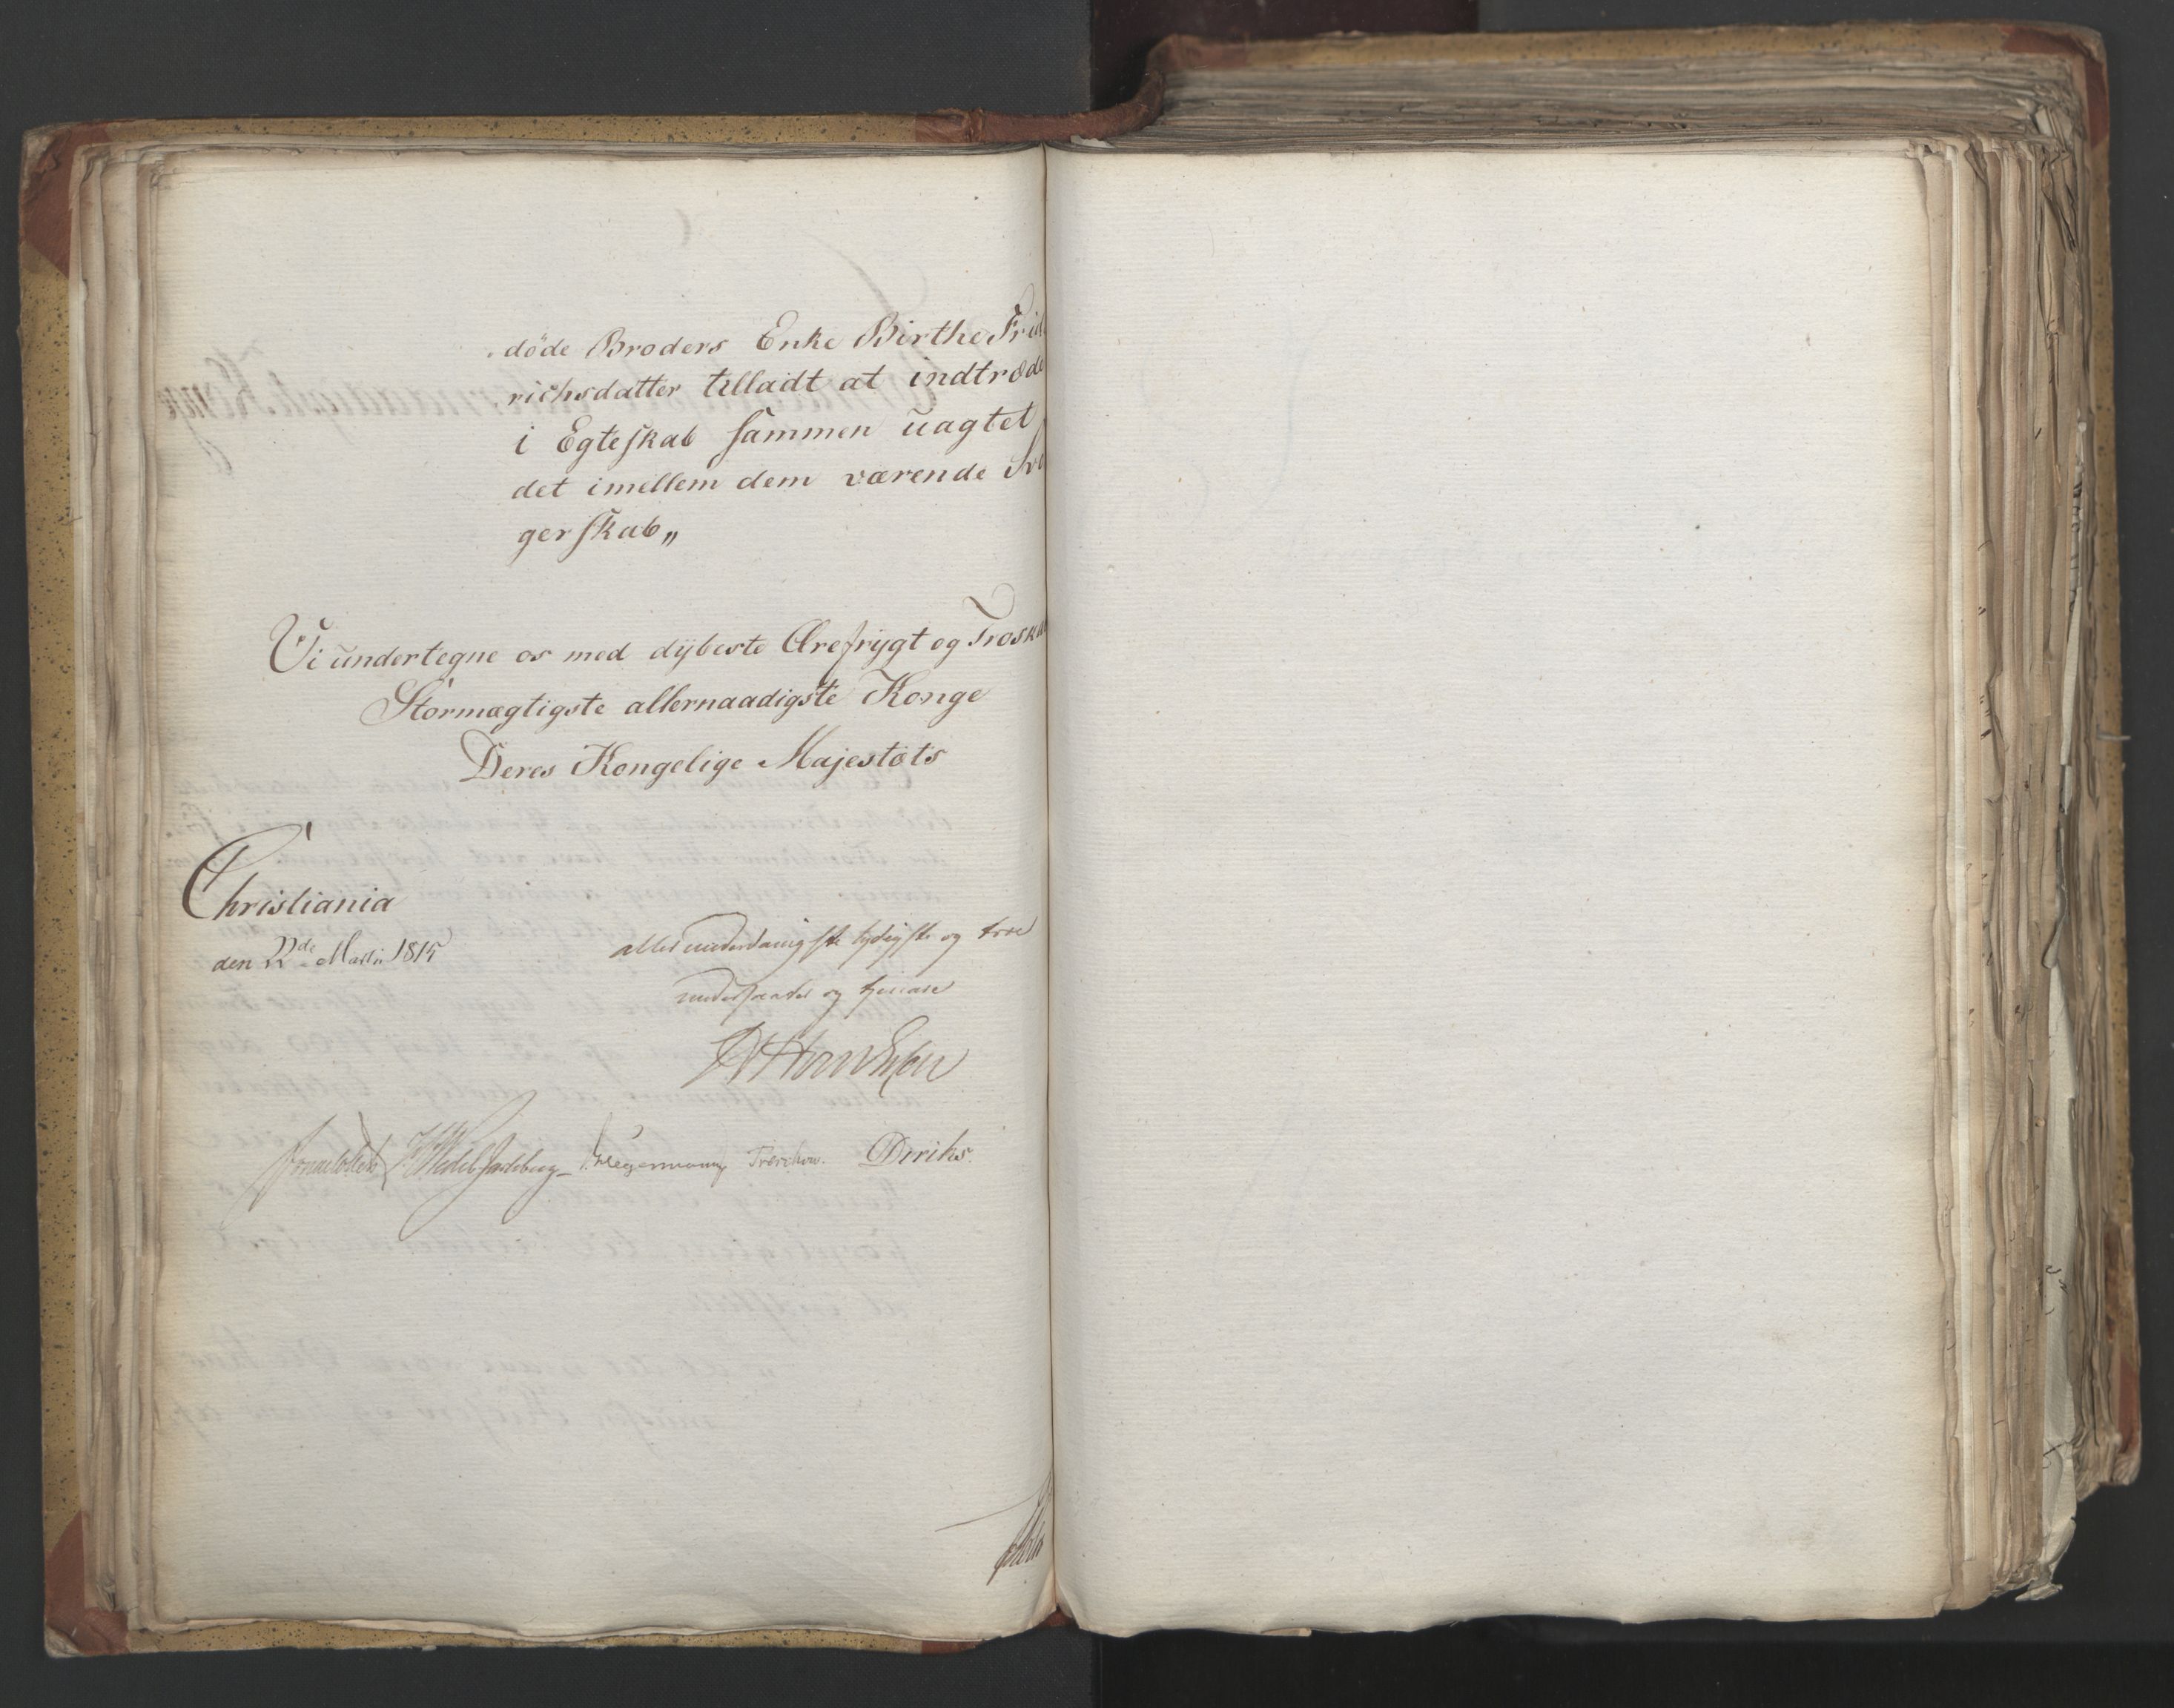 døde Broders Enke Birthe Frid
richsdatter tilladt at indtræde
i Egteskab sammen uagtet
det imellem dem værende Svo
gerskab„
Vi undertegne os med dybeste Ærefrygt og Troskab
Stormægtigste allernaadigste Konge
Deres Kongelige Majestæts
Christiania
den 22de Martii 1815
allerunderdanigste lydigste og troe
undersaatter og tjenere
Sommerhielm JHWedel Jarlsberg – Hegermann Treschow. Diriks.